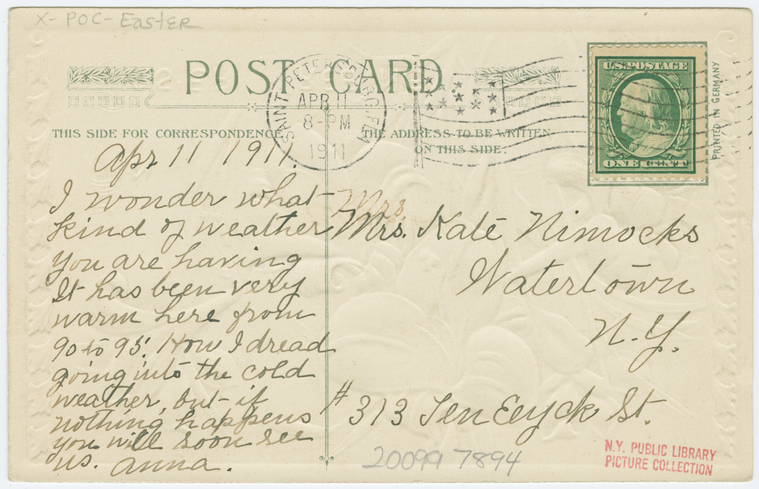 X-POC-Easter
POST CARD
SAINT PETERSBURG, FLA
APR 11
8-PM
1911
U.S. POSTAGE
ONE CENT
PRINTED IN GERMANY
THIS SIDE FOR CORRESPONDENCE
THE ADDRESS TO BE WRITTEN
ON THIS SIDE.
Apr 11 1911.
I wonder what
kind of weather
you are having
It has been very
warm here from
90 to 95. How I dread
going into the cold
weather, but if
nothing happens
you will soon see
us. Anna.
Mrs.
Mrs. Kate Nimocks
Watertown
N.Y.
# 313 Ten Eeyck St.
20099 7894
N.Y. PUBLIC LIBRARY
PICTURE COLLECTION